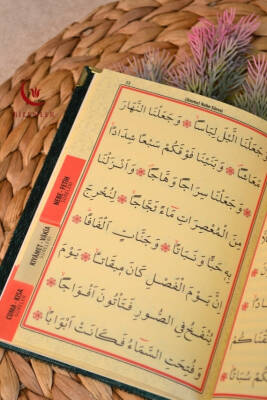 (Amme) Nebe Sûresi
وَجَعَلْنَا الَّيْلَ لِبَاسًا ۙ وَجَعَلْنَا النَّهَارَ
مَعَاشًا ۙ وَبَنَيْنَا فَوْقَكُمْ سَبْعًا شِدَادًا
وَجَعَلْنَا سِرَاجًا وَهَّاجًا ۙ وَاَنْزَلْنَا
مِنَ الْمُعْصِرَاتِ مَٓاءً ثَجَّاجًا ۙ لِنُخْرِجَ
بِه۪ حَبًّا وَنَبَاتًا ۙ وَجَنَّاتٍ اَلْفَافًا
اِنَّ يَوْمَ الْفَصْلِ كَانَ م۪يقَاتًا ۙ يَوْمَ
يُنْفَخُ فِي الصُّورِ فَتَأْتُونَ اَفْوَاجًا ۙ
وَفُتِحَتِ السَّمَٓاءُ فَكَانَتْ اَبْوَابًا ۙ
NEBE - FETİH
KIYAMET - VAKIA
CUMA - KISA